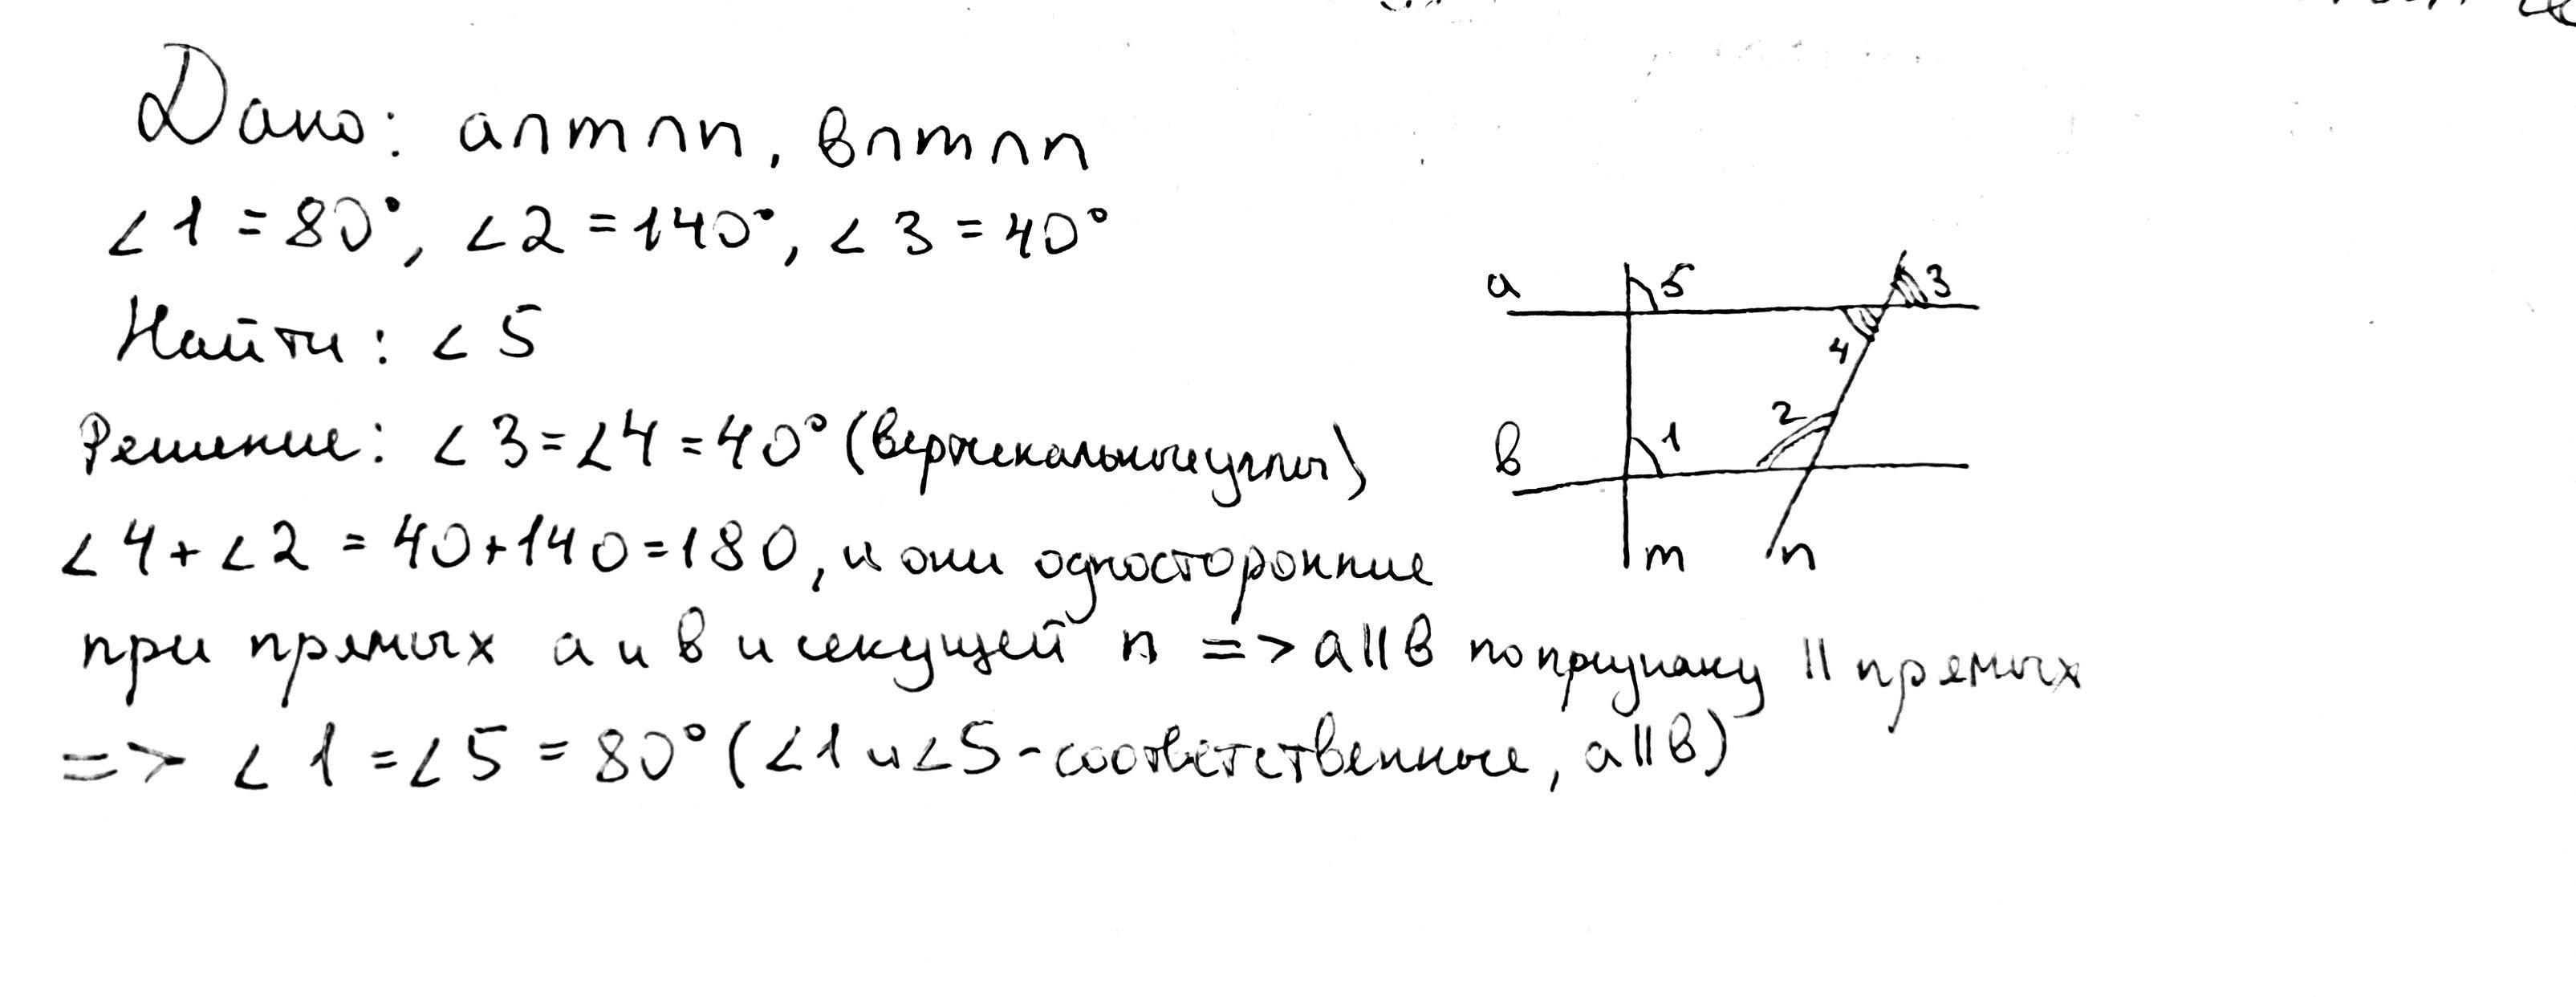 Дано: a∩m∩n, в∩m∩n
∠1=80°, ∠2=140°, ∠3=40°
Найти: ∠5
Решение: ∠3=∠4=40° (вертекальные углы)
∠4+∠2=40+140=180, и они односторонние
при прямых a и в и секущей n => a||в по признаку || прямых
=> ∠1=∠5=80° (∠1 и ∠5-соответственные, a||в)
a
5
3
4
2
1
в
m
n